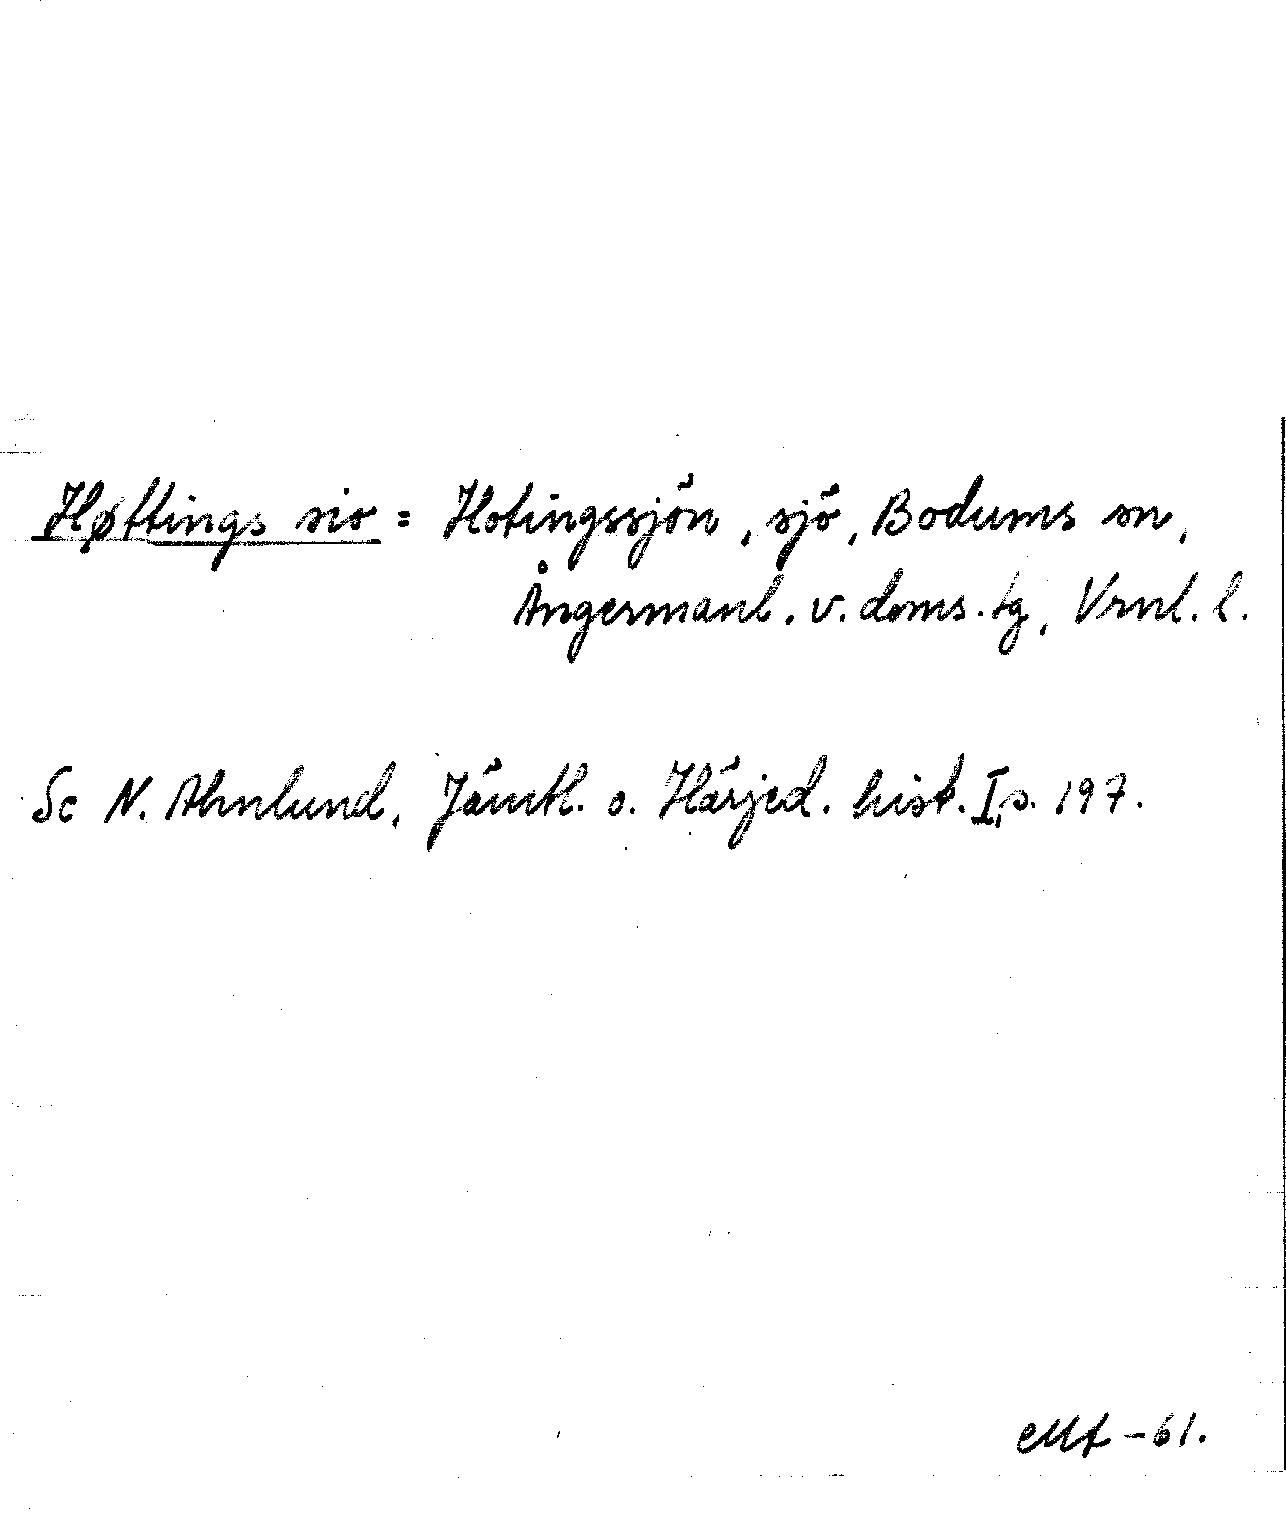 Høftings sio = Hotingssjön, sjö, Bodums sn,
Ångermanl. v. doms. tg, Vrnl. l.
Se N. Ahnlund, Jämtl. o. Härjed. hist. I, s. 197.
-61.